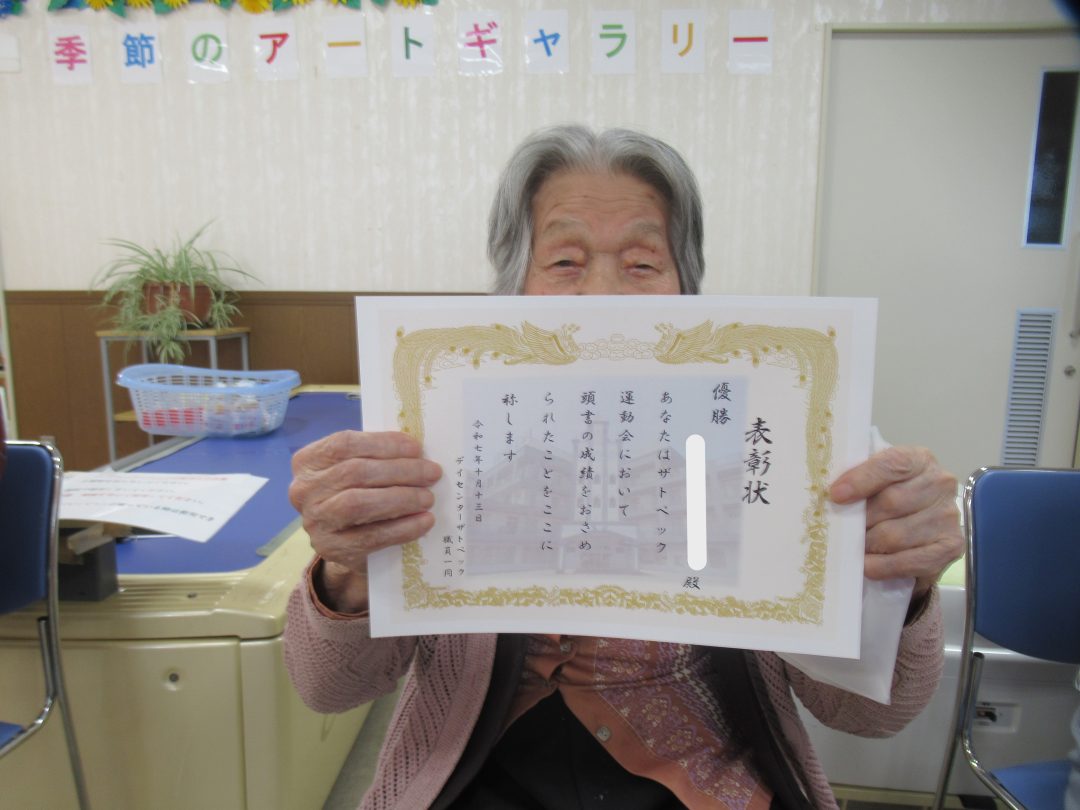 季節のアートギャラリー
表彰状
優勝
殿
あなたはザトペック
運動会において
頭書の成績をおさめ
られたことをここに
称します
令和七年十月十三日
デイセンターザトペック
職員一同